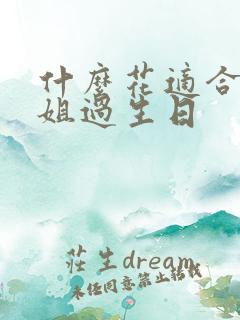 什麼花適合
姐過生日
莊生dream
未经同意禁止转载